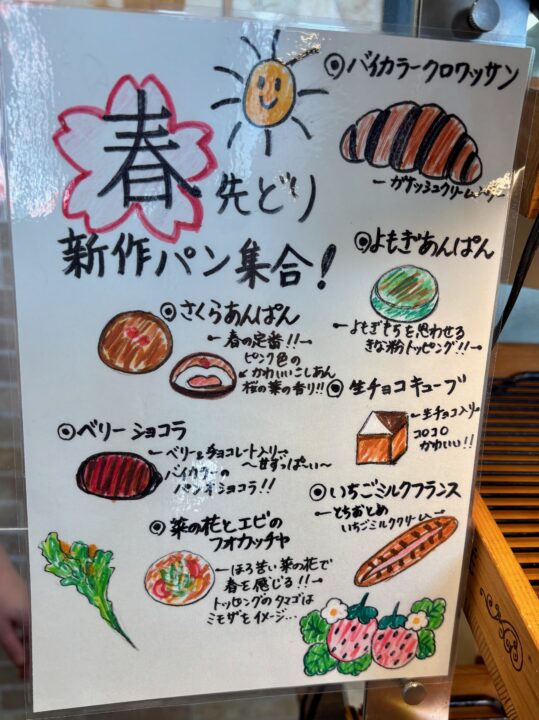 春先どり
新作パン集合!
◎バイカラークロワッサン
←ガナッシュクリーム入り
◎よもぎあんぱん
←よもぎもちを思わせる
きな粉トッピング!!→
◎さくらあんぱん
←春の定番!!→
ピンク色の
かわいいこしあん
桜の葉の香り!!
◎生チョコキューブ
←生チョコ入り
コロコロ
かわいい!!
◎ベリーショコラ
←ベリーとチョコレート入り
〜甘ずっぱーい〜
バイカラーの
パンオショコラ!!
◎いちごミルクフランス
←とちおとめ
いちごミルククリーム→
◎菜の花とエビの
フォカッチャ
←ほろ苦い菜の花で
春を感じる!!→
トッピングのタマゴは
ミモザをイメージ...